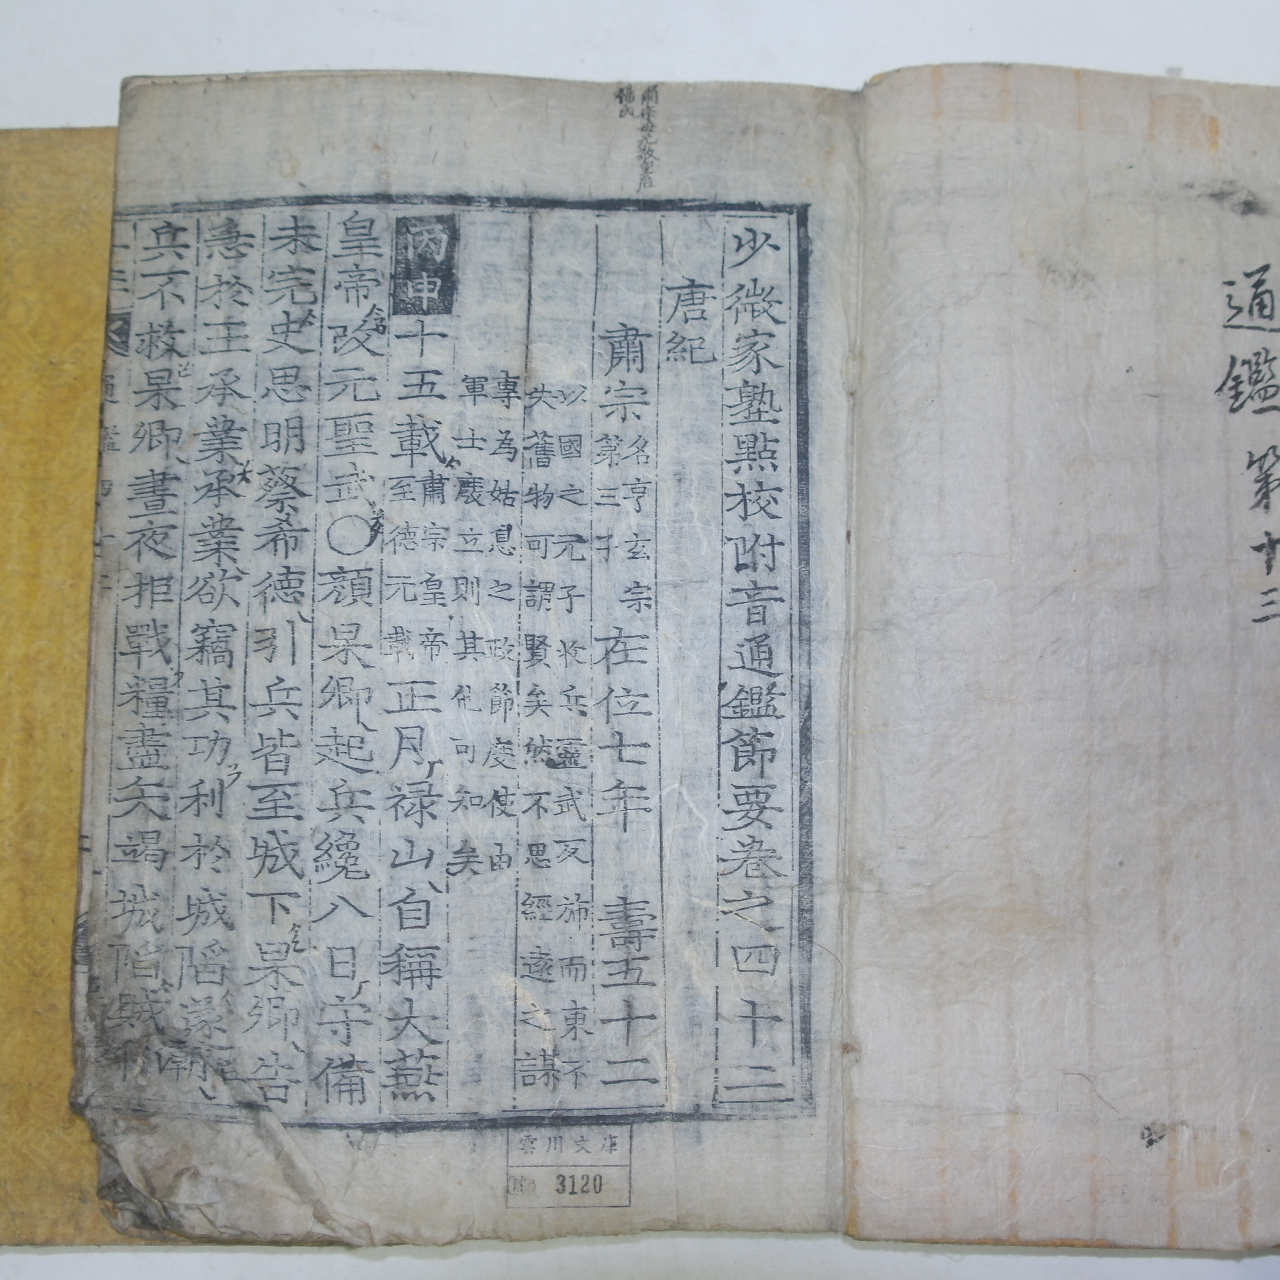 通鑑 第十三
少微家塾點校附音通鑑節要卷之四十二
唐紀
肅宗 名亨玄宗第三子 在位七年 壽五十二
以國之元子收兵靈武反旆而東不
失舊物可謂賢矣然不思經遠之謀
專為姑息之政節度使由
軍士廢立則其他可知矣
丙申 十五載 肅宗皇帝至德元載 正月祿山自稱大燕
皇帝改元聖武○顏杲卿起兵纔八日守備
未完史思明蔡希德引兵皆至城下杲卿告
急於王承業承業欲竊其功利於城陷遂擁
兵不救杲卿晝夜拒戰糧盡矢竭城陷賊
雲川文庫
3120